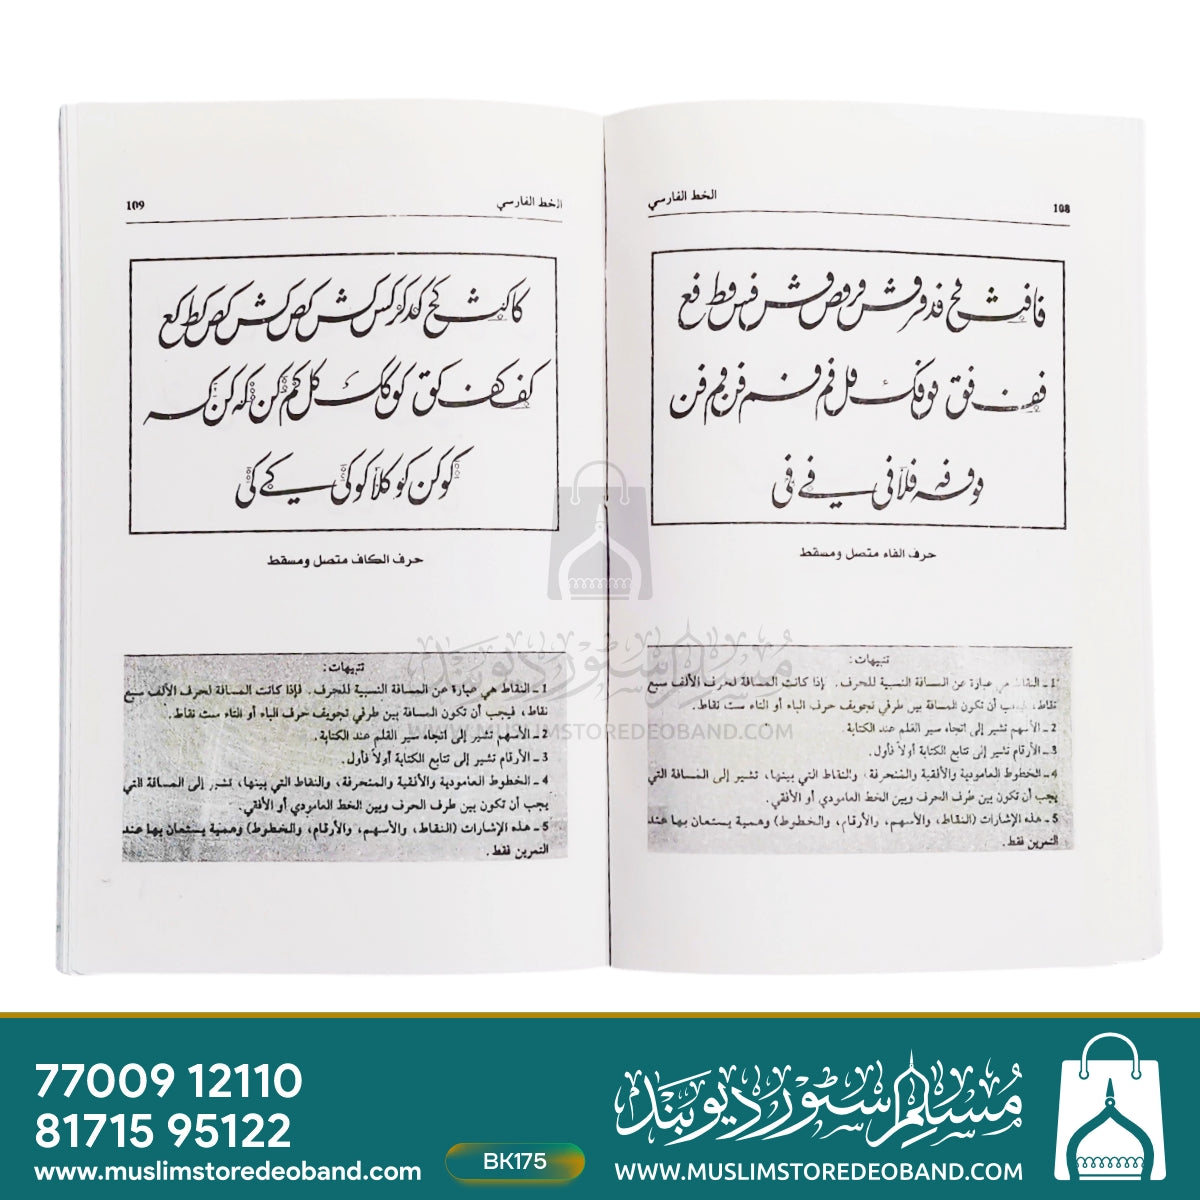 الخط الفارسي
108
فا فث فح فد فر فس فش فص فش فس فط فع
فف فق فو فك فل فم فم فن فم فن
فو فه فلا فى فے فى
حرف الفاء متصل ومسقط
تنبيهات:
1 ـ النقاط هي عبارة عن المسافة النسبية للحرف. فإذا كانت المسافة لحرف الألف سبع
نقاط، فيجب أن تكون المسافة بين طرفي تجويف حرف الباء أو التاء ست نقاط.
2 ـ الأسهم تشير إلى اتجاه سير القلم عند الكتابة.
3 ـ الأرقام تشير إلى تتابع الكتابة أولاً فأول.
4 ـ الخطوط العامودية والأفقية والمنحرفة، والنقاط التي بينها، تشير إلى المسافة التي
يجب أن تكون بين طرف الحرف وبين الخط العامودي أو الأفقي.
5 ـ هذه الإشارات (النقاط، والأسهم، والأرقام، والخطوط) وهمية يستعان بها عند
التمرين فقط.
109
الخط الفارسي
حرف الكاف متصل ومسقط
تنبيهات:
1 ـ النقاط هي عبارة عن المسافة النسبية للحرف. فإذا كانت المسافة لحرف الألف سبع
نقاط، فيجب أن تكون المسافة بين طرفي تجويف حرف الباء أو التاء ست نقاط.
2 ـ الأسهم تشير إلى اتجاه سير القلم عند الكتابة.
3 ـ الأرقام تشير إلى تتابع الكتابة أولاً فأول.
4 ـ الخطوط العامودية والأفقية والمنحرفة، والنقاط التي بينها، تشير إلى المسافة التي
يجب أن تكون بين طرف الحرف وبين الخط العامودي أو الأفقي.
5 ـ هذه الإشارات (النقاط، والأسهم، والأرقام، والخطوط) وهمية يستعان بها عند
التمرين فقط.
مسلم سٹور دیوبند
WWW.MUSLIMSTOREDEOBAND.COM
77009 12110
81715 95122
www.muslimstoredeoband.com
BK175
مسلم سٹور دیوبند
WWW.MUSLIMSTOREDEOBAND.COM